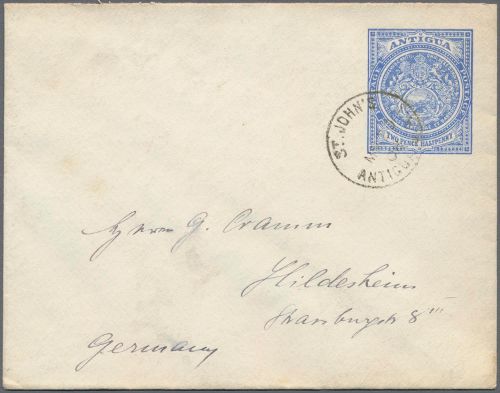 ANTIGUA
POSTAGE
TWO PENCE HALFPENNY
ST. JOHN'S
ANTIGUA
Herrn G. Cramm
Hildesheim
Strasburgstr 8 III
Germany